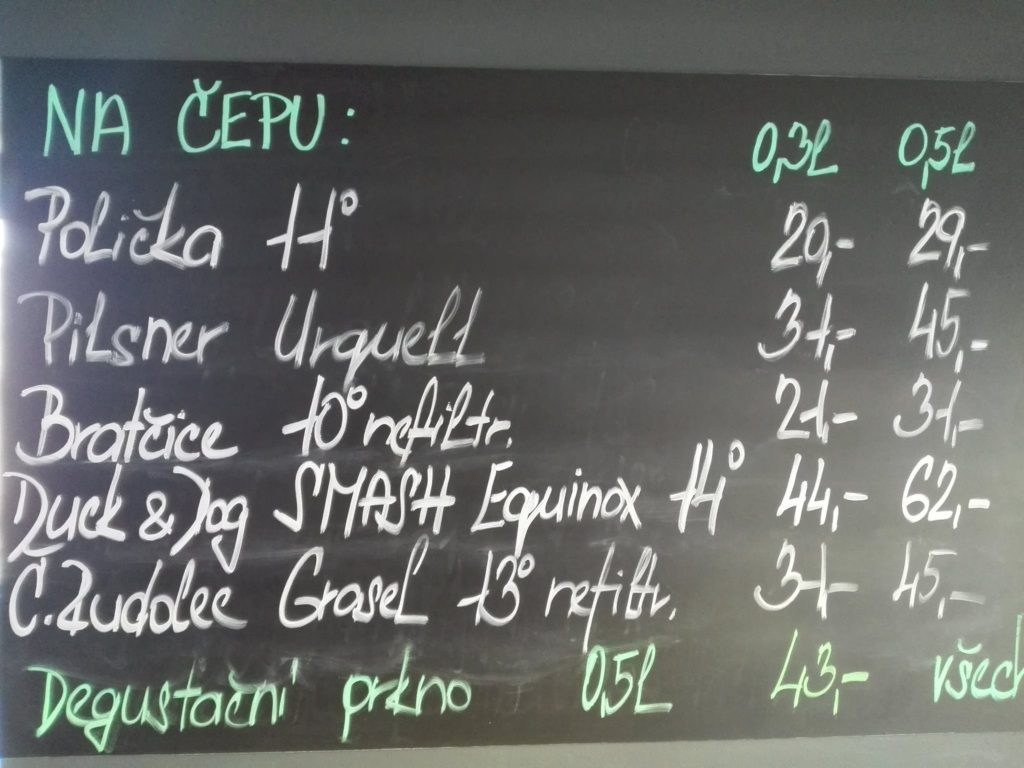 NA ČEPU: 0,3l 0,5l
Polička 11° 20,- 29,-
Pilsner Urquell 31,- 45,-
Bratčice 10° nefiltr. 21,- 31,-
Duck & Dog SMASH Equinox 14° 44,- 62,-
Č. Rudolec Grasel 13° nefiltr. 31,- 45,-
Degustační prkno 0,5l 43,- všech